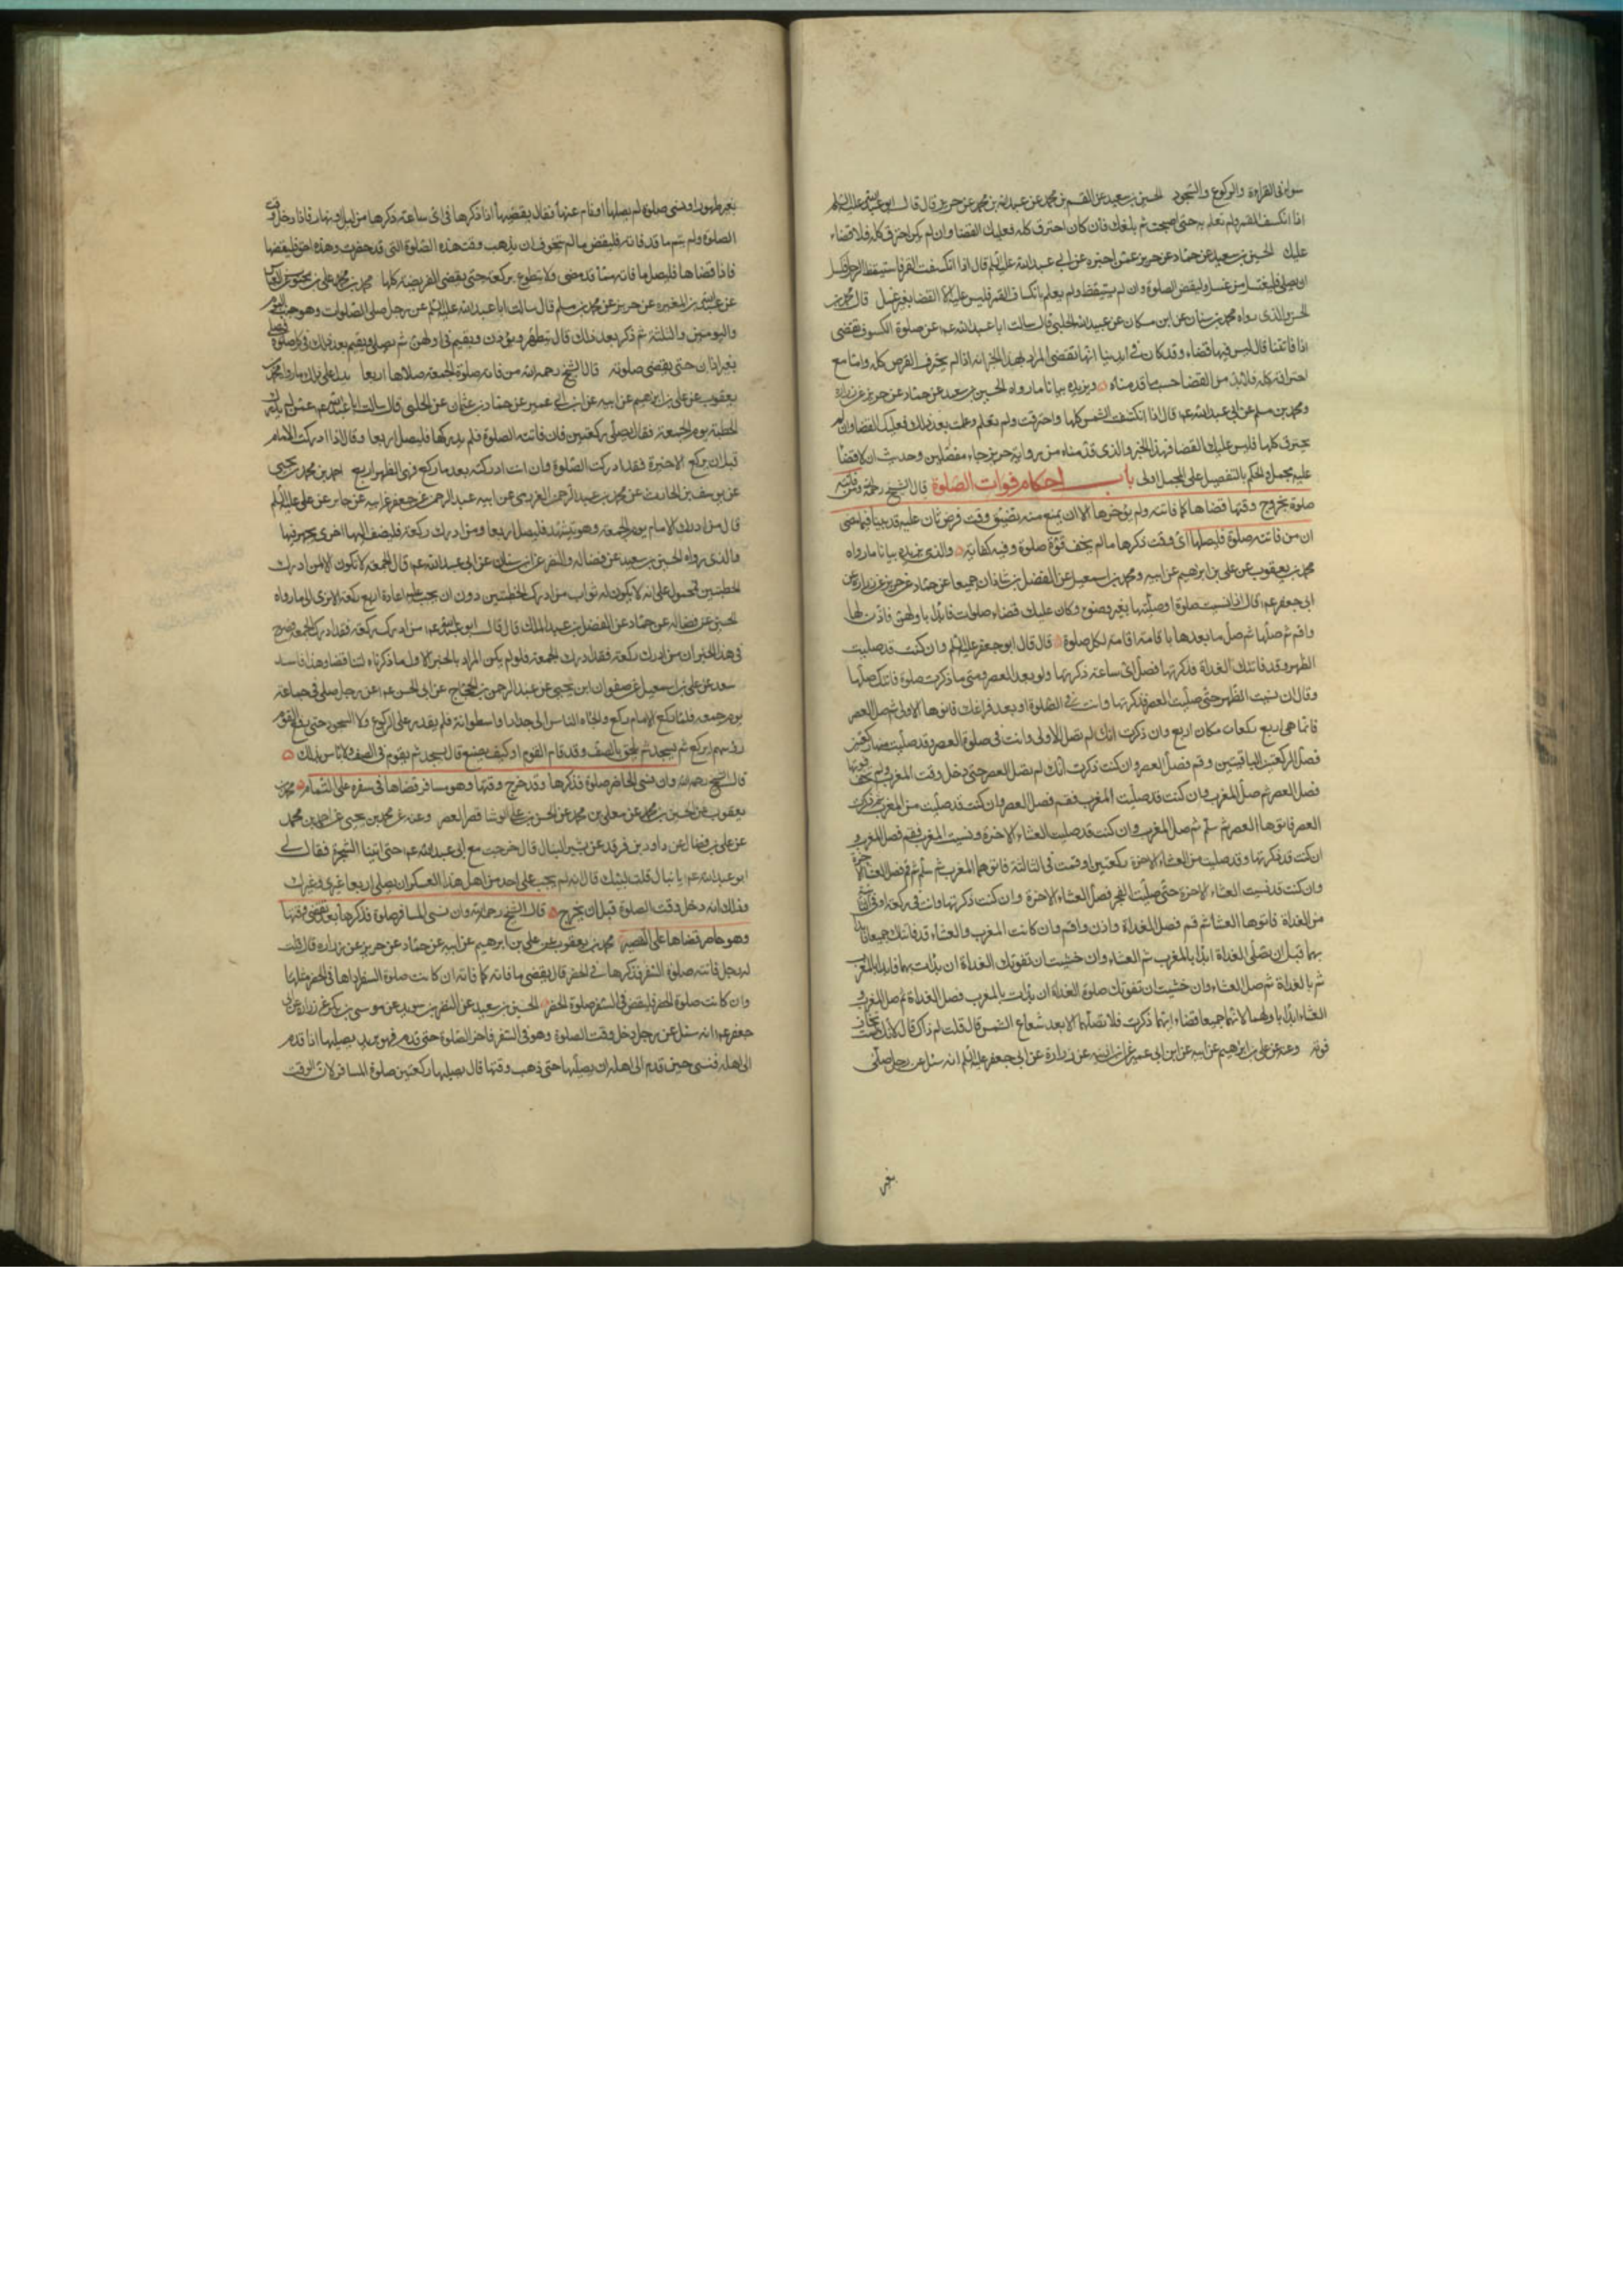 سواء فى القراءة والركوع والسجود الحسين بن سعيد عن القسم بن محمد عن عبد الله بن محمد عن حريز قال قال ابو عبد الله عليه السلم
اذا انكسف القمر ولم تعلم به حتى اصبحت ثم بلغك فان كان احترق كله فعليك القضا وان لم يكن احترق كله فلا قضاء
عليك الحسين بن سعيد عن حماد عن حريز عمن اخبره عن ابى عبد الله عليه السلم قال اذا انكسفت القمر فاستيقظ الرجل فكسل
ان يصلى فليغتسل من غد وليقض الصلوة وان لم يستيقظ ولم يعلم بانكساف القمر فليس عليه الا القضا بغير غسل قال محمد بن
الحسن والذى رواه محمد بن سنان عن ابن مسكان عن عبيد الله الحلبى قال سالت ابا عبد الله عم عن صلوة الكسوف تقضى
اذا فاتتنا قال ليس فيها قضاء وقد كان فى ايدينا انها تقضى المراد بهذا الخبر انه اذا لم يحترق القرص كله واما مع
احتراقه كله فلابد من القضا حسب ما قدمناه ويزيده بيانا ما رواه الحسين بن سعيد عن حماد عن حريز عن زرارة
ومحمد بن مسلم عن ابى عبد الله عم قال اذا انكسفت الشمس كلها واحترقت ولم تعلم وعلمت بعد ذلك فعليك القضا وان لم
يحترق كلها فليس عليك القضا فهذا الخبر والذى قدمناه من رواية حريز جاء مفصلين وحديث ان لا قضا
عليه مجمل والحكم بالتفصيل على المجمل اولى باب احكام فوات الصلوة قال الشيخ رحمه الله ومن فاتته
صلوة بخروج وقتها قضاها كما فاتته ولم يؤخرها الا ان يمنع منه تضيق وقت فرض ثان عليه قد بينا فيما مضى
ان من فاتته صلوة فليصلها اى وقت ذكرها ما لم يخف فوة صلوة وفيه كفاية والذى يزيده بيانا ما رواه
محمد بن يعقوب عن على بن ابرهيم عن ابيه ومحمد بن اسمعيل عن الفضل بن شاذان جميعا عن حماد عن حريز عن زرارة عن
ابى جعفر عم قال اذا نسيت صلوة او صليتها بغير وضوء وكان عليك قضاء صلوات فابدأ باولهن فاذن لها
واقم ثم صلها ثم صل ما بعدها باقامة اقامة لكل صلوة قال قال ابو جعفر عليه السلم وان كنت قد صليت
الظهر وقد فاتتك الغداة فذكرتها فصل اى ساعة ذكرتها ولو بعد العصر ومتى ما ذكرت صلوة فاتتك صليتها
وقال ان نسيت الظهر حتى صليت العصر فذكرتها وانت فى الصلوة او بعد فراغك فانوها الاولى ثم صل العصر
فانما هى اربع ركعات مكان اربع وان ذكرت انك لم تصل الاولى وانت فى صلوة العصر وقد صليت منها ركعتين
فصل الركعتين الباقيتين وقم فصل العصر وان كنت ذكرت انك لم تصل العصر حتى دخل وقت المغرب ولم تخف فوتها
فصل العصر ثم صل المغرب وان كنت قد صليت المغرب فقم فصل العصر وان كنت قد صليت من المغرب ثم ذكرت
العصر فانوها العصر ثم سلم ثم صل المغرب وان كنت قد صليت العشاء الاخرة ونسيت المغرب فقم فصل المغرب و
ان كنت قد ذكرتها وقد صليت من العشاء الاخرة ركعتين او قمت فى الثالثة فانوها المغرب ثم سلم ثم قم فصل العشاء الاخرة
وان كنت قد نسيت العشاء الاخرة حتى صليت الفجر فصل العشاء الاخرة وان كنت ذكرتها وانت فى ركعة او فى الثانية
من الغداة فانوها العشا ثم قم فصل الغداة واذن واقم وان كانت المغرب والعشاء قد فاتتك جميعا فابدأ
بهما قبل ان تصلى الغداة ابدأ بالمغرب ثم العشاء وان خشيت ان تفوتك الغداة ان بدأت بهما فابدأ بالمغرب
ثم بالغداة ثم صل العشاء وان خشيت ان تفوتك صلوة الغداة ان بدأت بالمغرب فصل الغداة ثم صل المغرب و
العشاء ابدأ باولهما لانهما جميعا قضاء ايهما ذكرت فلا تصلهما الا بعد شعاع الشمس قال قلت لم ذاك قال لانك لست تخاف
فوته وعنه عن على بن ابرهيم عن ابيه عن ابن ابى عمير عن ابن اذينه عن زرارة عن ابى جعفر عليه السلم انه سئل عن رجل صلى
بغير
بغير طهور او نسى صلوة لم يصلها او نام عنها فقال يقضيها اذا ذكرها فى اى ساعة ذكرها من ليل او نهار فاذا دخل وقت
الصلوة ولم يتم ما قد فاته فليقض ما لم يتخوف ان يذهب وقت هذه الصلوة التى قد حضرت وهذه احق فليقضها
فاذا قضاها فليصل ما فاته مما قد مضى ولا يتطوع بركعة حتى يقضى الفريضة كلها محمد بن على بن محبوب عن العباس
عن عبد الله بن المغيرة عن حريز عن محمد بن مسلم قال سالت ابا عبد الله عليه السلم عن رجل صلى الصلوات وهو جنب اليوم
واليومين والثلثة ثم ذكر بعد ذلك قال يتطهر ويؤذن ويقيم فى اولهن ثم يصلى ويقيم بعد ذلك فى كل صلوة فيصلى
بغير اذان حتى يقضى صلوته قال الشيخ رحمه الله من فاته صلوة الجمعة صلاها اربعا يدل على ذلك ما رواه محمد بن
يعقوب عن على بن ابرهيم عن ابيه عن ابن ابى عمير عن حماد بن عثمان عن الحلبى قال سالت ابا عبد الله عم عمن لم يدرك
الخطبة يوم الجمعة فقال يصلى ركعتين فان فاتته الصلوة فلم يدركها فليصل اربعا وقال اذا ادركت الامام
قبل ان يركع الاخيرة فقد ادركت الصلوة وان انت ادركته بعد ما ركع فهى الظهر اربع احمد بن محمد بن يحيى
عن يوسف بن الحارث عن محمد بن عبد الرحمن العزرمى عن ابيه عبد الرحمن عن جعفر عن ابيه عن جابر عن على عليه السلم
قال من ادرك الامام يوم الجمعة وهو يتشهد فليصل اربعا ومن ادرك ركعة فليضف اليها اخرى يجهر فيها
والذى رواه الحسين بن سعيد عن فضالة والنضر عن ابن سنان عن ابى عبد الله عم قال الجمعة لا تكون الا لمن ادرك
الخطبتين فمحمول على انه لا يكون له ثواب من ادرك الخطبتين دون ان يجب عليه اعادة اربع ركعة الا ترى الى ما رواه
الحسين عن فضالة عن حماد عن الفضل بن عبد الملك قال قال ابو عبد الله عم من ادرك ركعة فقد ادرك الجمعة
فى هذا الخبر ان من ادرك ركعة فقد ادرك الجمعة فلو لم يكن المراد بالخبر الاول ما ذكرناه لتناقضا وهذا فاسد
سعد عن على بن اسمعيل عن صفوان ابن يحيى عن عبد الرحمن بن الحجاج عن ابى الحسن عم عن رجل صلى فى جماعة
يوم جمعة فلما ركع الامام ركع والجاه الناس الى جدار او اسطوانة فلم يقدر على الركوع ولا السجود حتى رفع القوم
رؤسهم ايركع ثم يسجد ثم يلحق بالصف وقد قام القوم او كيف يصنع قال يسجد ثم يقوم فى الصف ولا باس بذلك
قال الشيخ رحمه الله وان نسى الحاضر صلوة فذكرها وقد خرج وقتها وهو مسافر قضاها فى سفره على التمام محمد بن
يعقوب عن الحسين بن محمد عن معلى بن محمد عن الحسن بن على الوشا قصر العصر وعنه عن محمد بن يحيى عن احمد بن محمد
عن على بن فضال عن داود بن فرقد عن بشير النبال قال خرجت مع ابى عبد الله عم حتى اتينا الشجرة فقال لى
ابو عبد الله عم يا نبال قلت لبيك قال انه لم يجب على احد من اهل هذا العسكر ان يصلى اربعا غيرى وغيرك
وذلك انه دخل وقت الصلوة قبل ان يخرج قال الشيخ رحمه الله وان نسى المسافر صلوة فذكرها بعد تقضى وقتها
وهو حاضر قضاها على القصر محمد بن يعقوب عن على بن ابرهيم عن ابيه عن حماد عن حريز عن زرارة قال قلت
له رجل فاتته صلوة السفر فذكرها فى الحضر قال يقضى ما فاته كما فاته ان كانت صلوة السفر اداها فى الحضر مثلها
وان كانت صلوة الحضر فليقض فى السفر صلوة الحضر الحسين بن سعيد عن النضر بن سويد عن موسى بن بكر عن زرارة عن ابى
جعفر عم انه سئل عن رجل دخل وقت الصلوة وهو فى السفر فاخر الصلوة حتى قدم فهو يريد يصليها اذا قدم
الى اهله فنسى حين قدم الى اهله ان يصليها حتى ذهب وقتها قال يصليها ركعتين صلوة المسافر لان الوقت